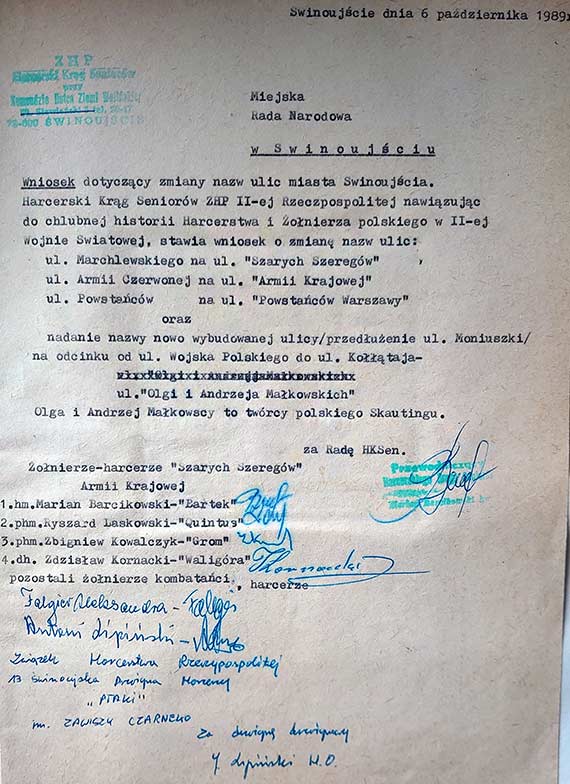 Swinoujście dnia 6 października 1989r
ZHP
Harcerski Krąg Seniorów
przy
Komendzie Hufca Ziemi Wolińskiej
72-600 ŚWINOUJŚCIE
Miejska
Rada Narodowa
w Swinoujściu
Wniosek dotyczący zmiany nazw ulic miasta Swinoujścia.
Harcerski Krąg Seniorów ZHP II-ej Rzeczpospolitej nawiązując
do chlubnej historii Harcerstwa i Żołnierza polskiego w II-ej
Wojnie Swiatowej, stawia wniosek o zmianę nazw ulic:
ul. Marchlewskiego na ul. "Szarych Szeregów"
ul. Armii Czerwonej na ul. "Armii Krajowej"
ul. Powstańców na ul. "Powstańców Warszawy"
oraz
nadanie nazwy nowo wybudowanej ulicy/przedłużenie ul. Moniuszki/
na odcinku od ul. Wojska Polskiego do ul. Kołłątaja-
ul."Olgi i Andrzeja Małkowskich"
Olga i Andrzej Małkowscy to twórcy polskiego Skautingu.
za Radę HKSen.
Przewodniczący
Żołnierze-harcerze "Szarych Szeregów"
Armii Krajowej
1.hm.Marian Barcikowski-"Bartek"
2.phm.Ryszard Laskowski-"Quintus"
3.phm.Zbigniew Kowalczyk-"Grom"
4.dh. Zdzisław Kornacki-"Waligóra"
pozostali żołnierze kombatańci, harcerze
Falgier Aleksandra -
Antoni Lipiński -
Związek Harcerstwa Rzeczypospolitej
13 Świnoujska Drużyna Harcerzy
„PTAKI”
im. ZAWISZY CZARNEGO
Za drużynę drużynowy
Lipiński H.O.